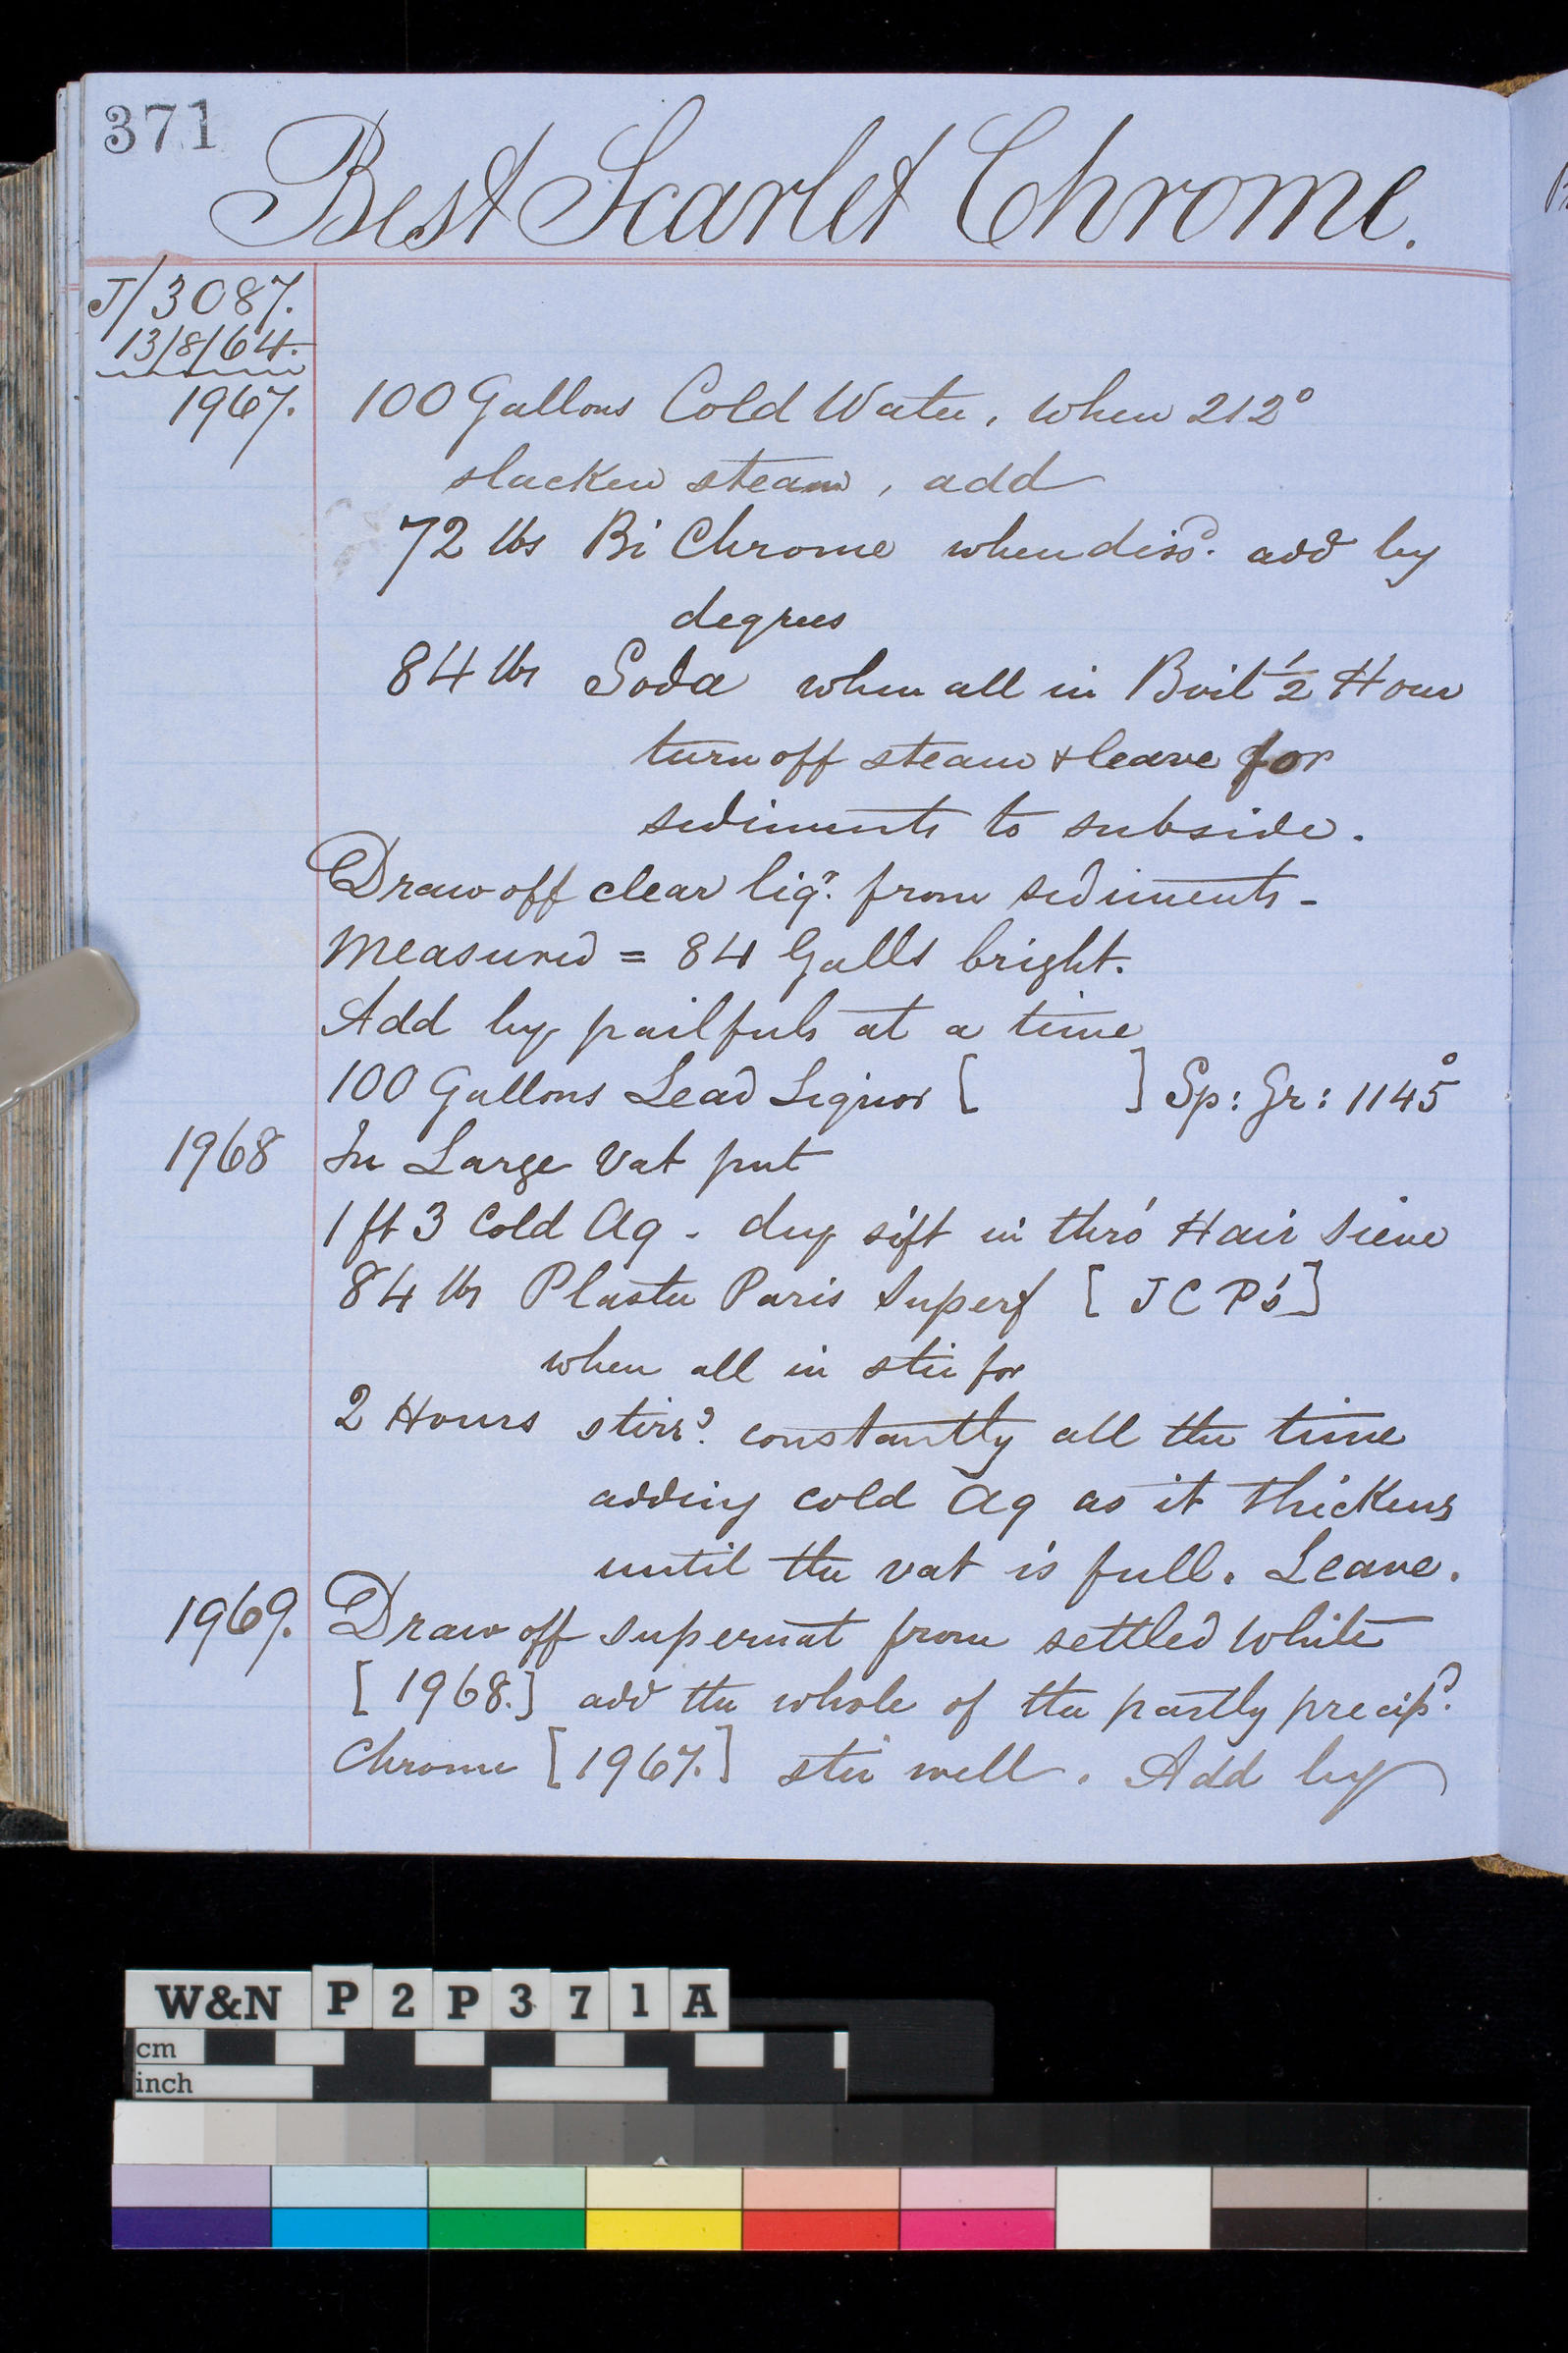 371
Best Scarlet Chrome.
J/3087.
13/8/64.
1967. 100 Gallons Cold Water, when 212°
slacken steam, add
72 lbs Bi Chrome when dissd. add by
degrees
84 lbs Soda when all in Boil ½ Hour
turn off steam & leave for
sediments to subside.
Draw off clear liqr. from sediments -
measured = 84 Galls bright.
Add by pailfuls at a time
100 Gallons Lead Liquor [ ] Sp: Gr: 1145°
1968 In Large Vat put
1 ft 3 Cold Aq - dry sift in thro' Hair Sieve
84 lbs Plaster Paris Superf [JCP's]
when all in stir for
2 Hours stirrd. constantly all the time
adding cold Aq as it thickens
until the vat is full. Leave.
1969. Draw off supernat from settled white
[1968.] add the whole of the partly precipd.
Chrome [1967.] stir well. Add by
W&N P2P371A
cm
inch